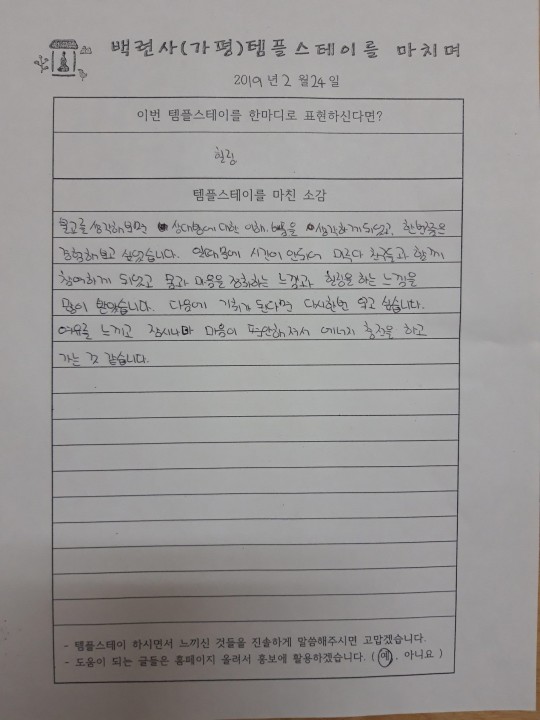 백련사(가평)템플스테이를 마치며
2019 년 2 월 24 일
이번 템플스테이를 한마디로 표현하신다면?
힐링
템플스테이를 마친 소감
불교를 생각해보면 상대방에 대한 이해, 배품을 생각하게되었고, 한번쯤은
경험해보고 싶었습니다. 일때문에 시간이 안되어 미루다 친구들과 함께
참여하게 되었고 몸과 마음을 정화하는 느낌과 힐링을 하는 느낌을
많이 받았습니다. 다음에 기회가 된다면 다시한번 오고 싶습니다.
여유를 느끼고 잠시나마 마음이 편안해져서 에너지 충전을 하고
가는 것 같습니다.
- 템플스테이 하시면서 느끼신 것들을 진솔하게 말씀해주시면 고맙겠습니다.
- 도움이 되는 글들은 홈페이지 올려서 홍보에 활용하겠습니다. ( 예 , 아니요 )